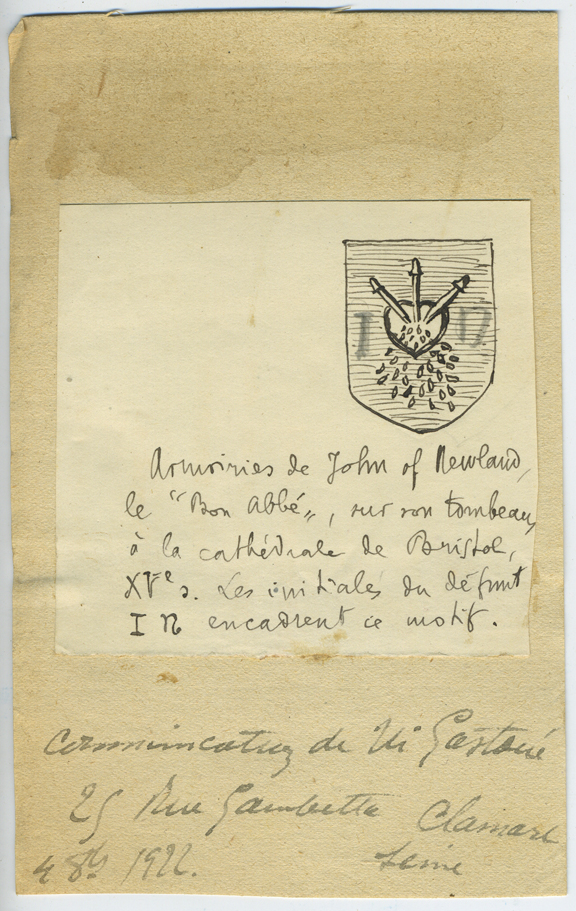 I n
Armoiries de John of Newland,
le "Bon Abbé", sur son tombeau,
à la cathédrale de Bristol,
XVe s. Les initiales du défunt
I n encadrent ce motif.
Communication de Mr Gastoué
25 Rue Gambetta Clamart
Seine
4 8bre 1922.